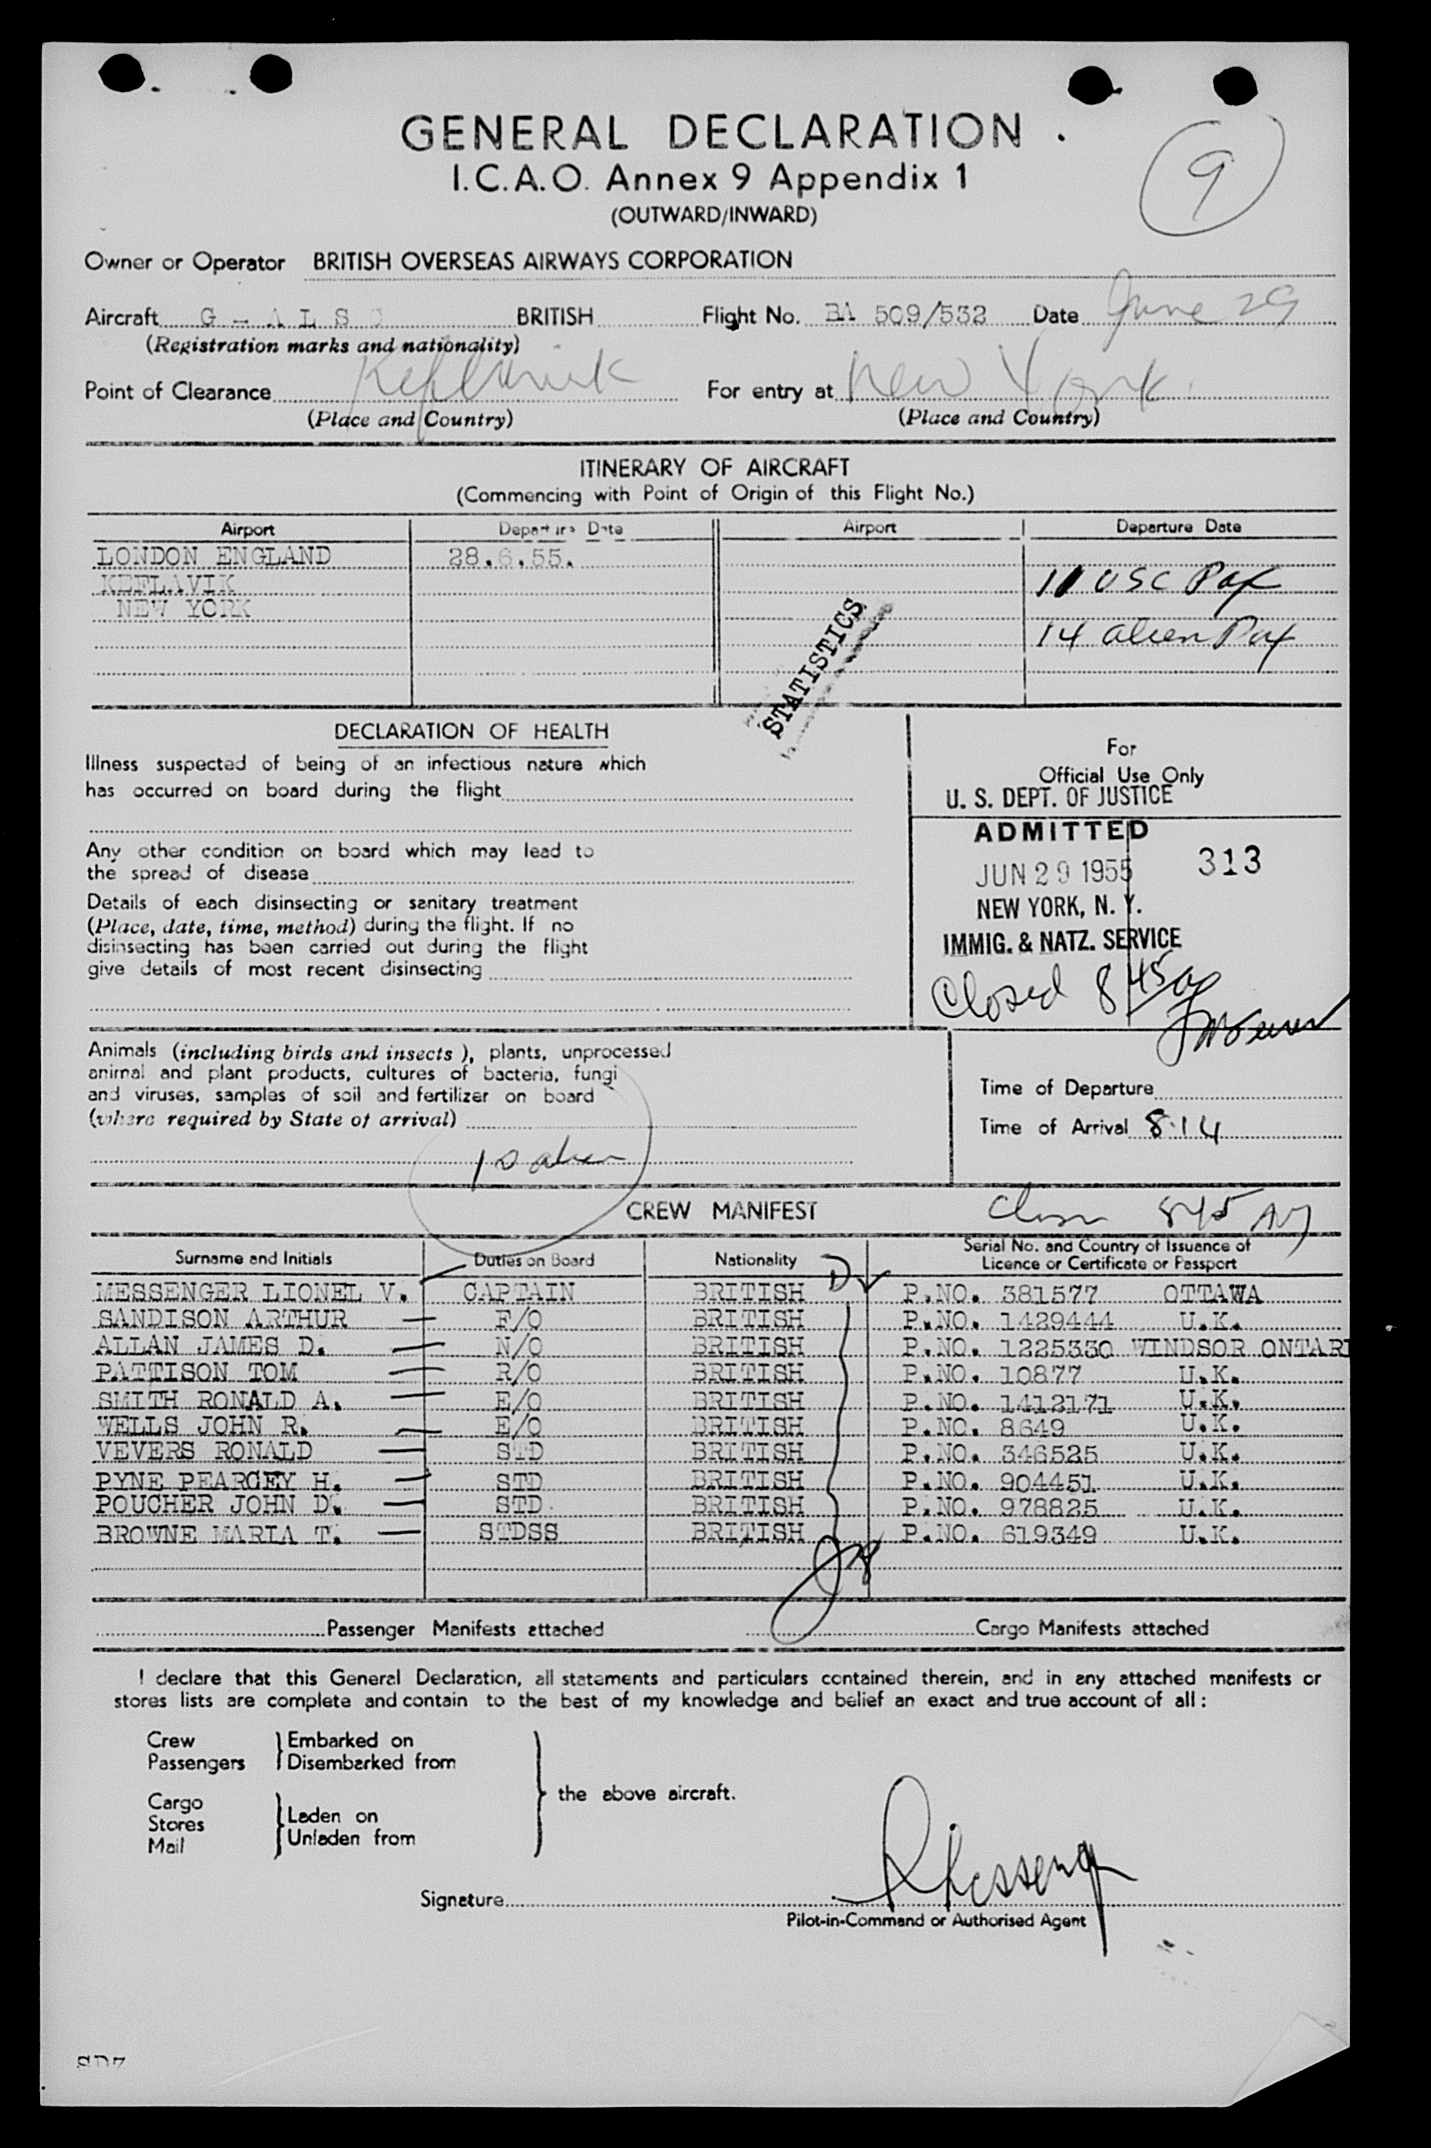 GENERAL DECLARATION
I.C.A.O. Annex 9 Appendix 1
(OUTWARD/INWARD)
9
Owner or Operator BRITISH OVERSEAS AIRWAYS CORPORATION
Aircraft G - A L S BRITISH Flight No. BA 509/532 Date June 29
(Registration marks and nationality)
Point of Clearance Keflavik For entry at New York.
(Place and Country) (Place and Country)
ITINERARY OF AIRCRAFT
(Commencing with Point of Origin of this Flight No.)
Airport Departure Date Airport Departure Date
LONDON ENGLAND 28.6.55.
KEFLAVIK 11 USC Pax
NEW YORK
14 alien Pax
STATISTICS
DECLARATION OF HEALTH
Illness suspected of being of an infectious nature which
has occurred on board during the flight
Any other condition on board which may lead to
the spread of disease
Details of each disinsecting or sanitary treatment
(Place, date, time, method) during the flight. If no
disinsecting has been carried out during the flight
give details of most recent disinsecting
For
Official Use Only
U. S. DEPT. OF JUSTICE
ADMITTED
JUN 29 1955 313
NEW YORK, N. Y.
IMMIG. & NATZ. SERVICE
Closed 8 45 a
Animals (including birds and insects), plants, unprocessed
animal and plant products, cultures of bacteria, fungi
and viruses, samples of soil and fertilizer on board
(where required by State of arrival)
10 alien
Time of Departure
Time of Arrival 8.14
CREW MANIFEST
845 AM
Surname and Initials Duties on Board Nationality Serial No. and Country of Issuance of
Licence or Certificate or Passport
MESSENGER LIONEL V. CAPTAIN BRITISH P.NO. 381577 OTTAWA
SANDISON ARTHUR F/O BRITISH P.NO. 1429444 U.K.
ALLAN JAMES D. N/O BRITISH P.NO. 1225330 WINDSOR ONTARI
PATTISON TOM R/O BRITISH P.NO. 10877 U.K.
SMITH RONALD A. E/O BRITISH P.NO. 1412171 U.K.
WELLS JOHN R. E/O BRITISH P.NO. 8649 U.K.
VEVERS RONALD STD BRITISH P.NO. 346525 U.K.
PYNE PEARCEY H. STD BRITISH P.NO. 904451 U.K.
POUCHER JOHN D. STD. BRITISH P.NO. 978825 U.K.
BROWNE MARIA T. STDSS BRITISH P.NO. 619349 U.K.
Passenger Manifests attached Cargo Manifests attached
I declare that this General Declaration, all statements and particulars contained therein, and in any attached manifests or
stores lists are complete and contain to the best of my knowledge and belief an exact and true account of all :
Crew Embarked on
Passengers Disembarked from
the above aircraft.
Cargo
Stores Laden on
Mail Unladen from
Signature
Pilot-in-Command or Authorised Agent